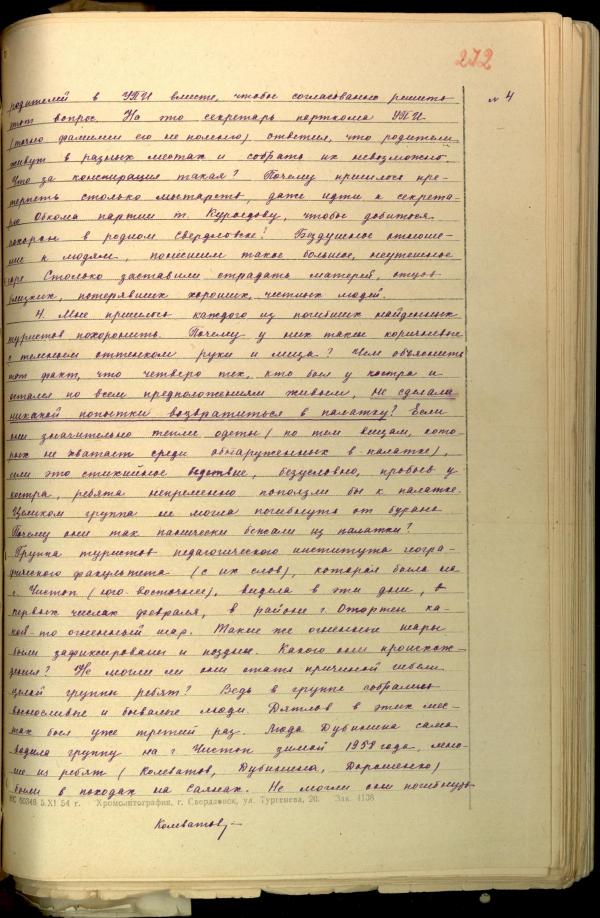 272
№ 4
родителей в УПИ вместе, чтобы согласованно решить
этот вопрос. На это секретарь парткома УПИ
(точно фамилии его не помню) ответил, что родители
живут в разных местах и собрать их невозможно.
Что за конспирация такая? Почему пришлось пре-
терпеть столько мытарств, даже идти к секрета-
рю Обкома партии т. Куроедову, чтобы добиться
похорон в родном Свердловске? Бездушное отноше-
ние к людям, понесшим такое большое, неутешное
горе. Столько заставили страдать матерей, отцов
близких, потерявших хороших, честных людей.
4. Мне пришлось каждого из погибших найденных
туристов похоронить. Почему у них такие коричневые
с темным оттенком руки и лица? Чем объяснить
тот факт, что четверо тех, кто был у костра и
остался по всем предположениям живым, не сделала
никакой попытки возвратиться в палатку? Если
они значительно теплее одеты (по тем вещам, кото-
рых не хватает среди обнаруженных в палатке),
если это стихийное бедствие, безусловно, пробыв у
костра, ребята непременно поползли бы к палатке.
Целиком группа не могла погибнуть от бурана.
Почему они так панически бежали из палатки?
Группа туристов педагогического института геогра-
фического факультета (с их слов), которая была на
г. Чистоп (юго-восточнее), видела в эти дни, в
первых числах февраля, в районе г. Отортен ка-
кой-то огненный шар. Такие же огненные шары
были зафиксированы и позднее. Какого они происхож-
дения? Не могли ли они стать причиной гибели
целой группы ребят? Ведь в группе собрались
выносливые и бывалые люди. Дятлов в этих мес-
тах был уже третий раз. Люда Дубинина сама
водила группу на г. Чистоп зимой 1958 года, мно-
гие из ребят (Колеватов, Дубинина, Дорошенко)
были в походах на Саянах. Не могли они погибнуть
5.XI 54 г. Хромолитография, г. Свердловск, ул. Тургенева, 20. Зак. 4138
Колеватов